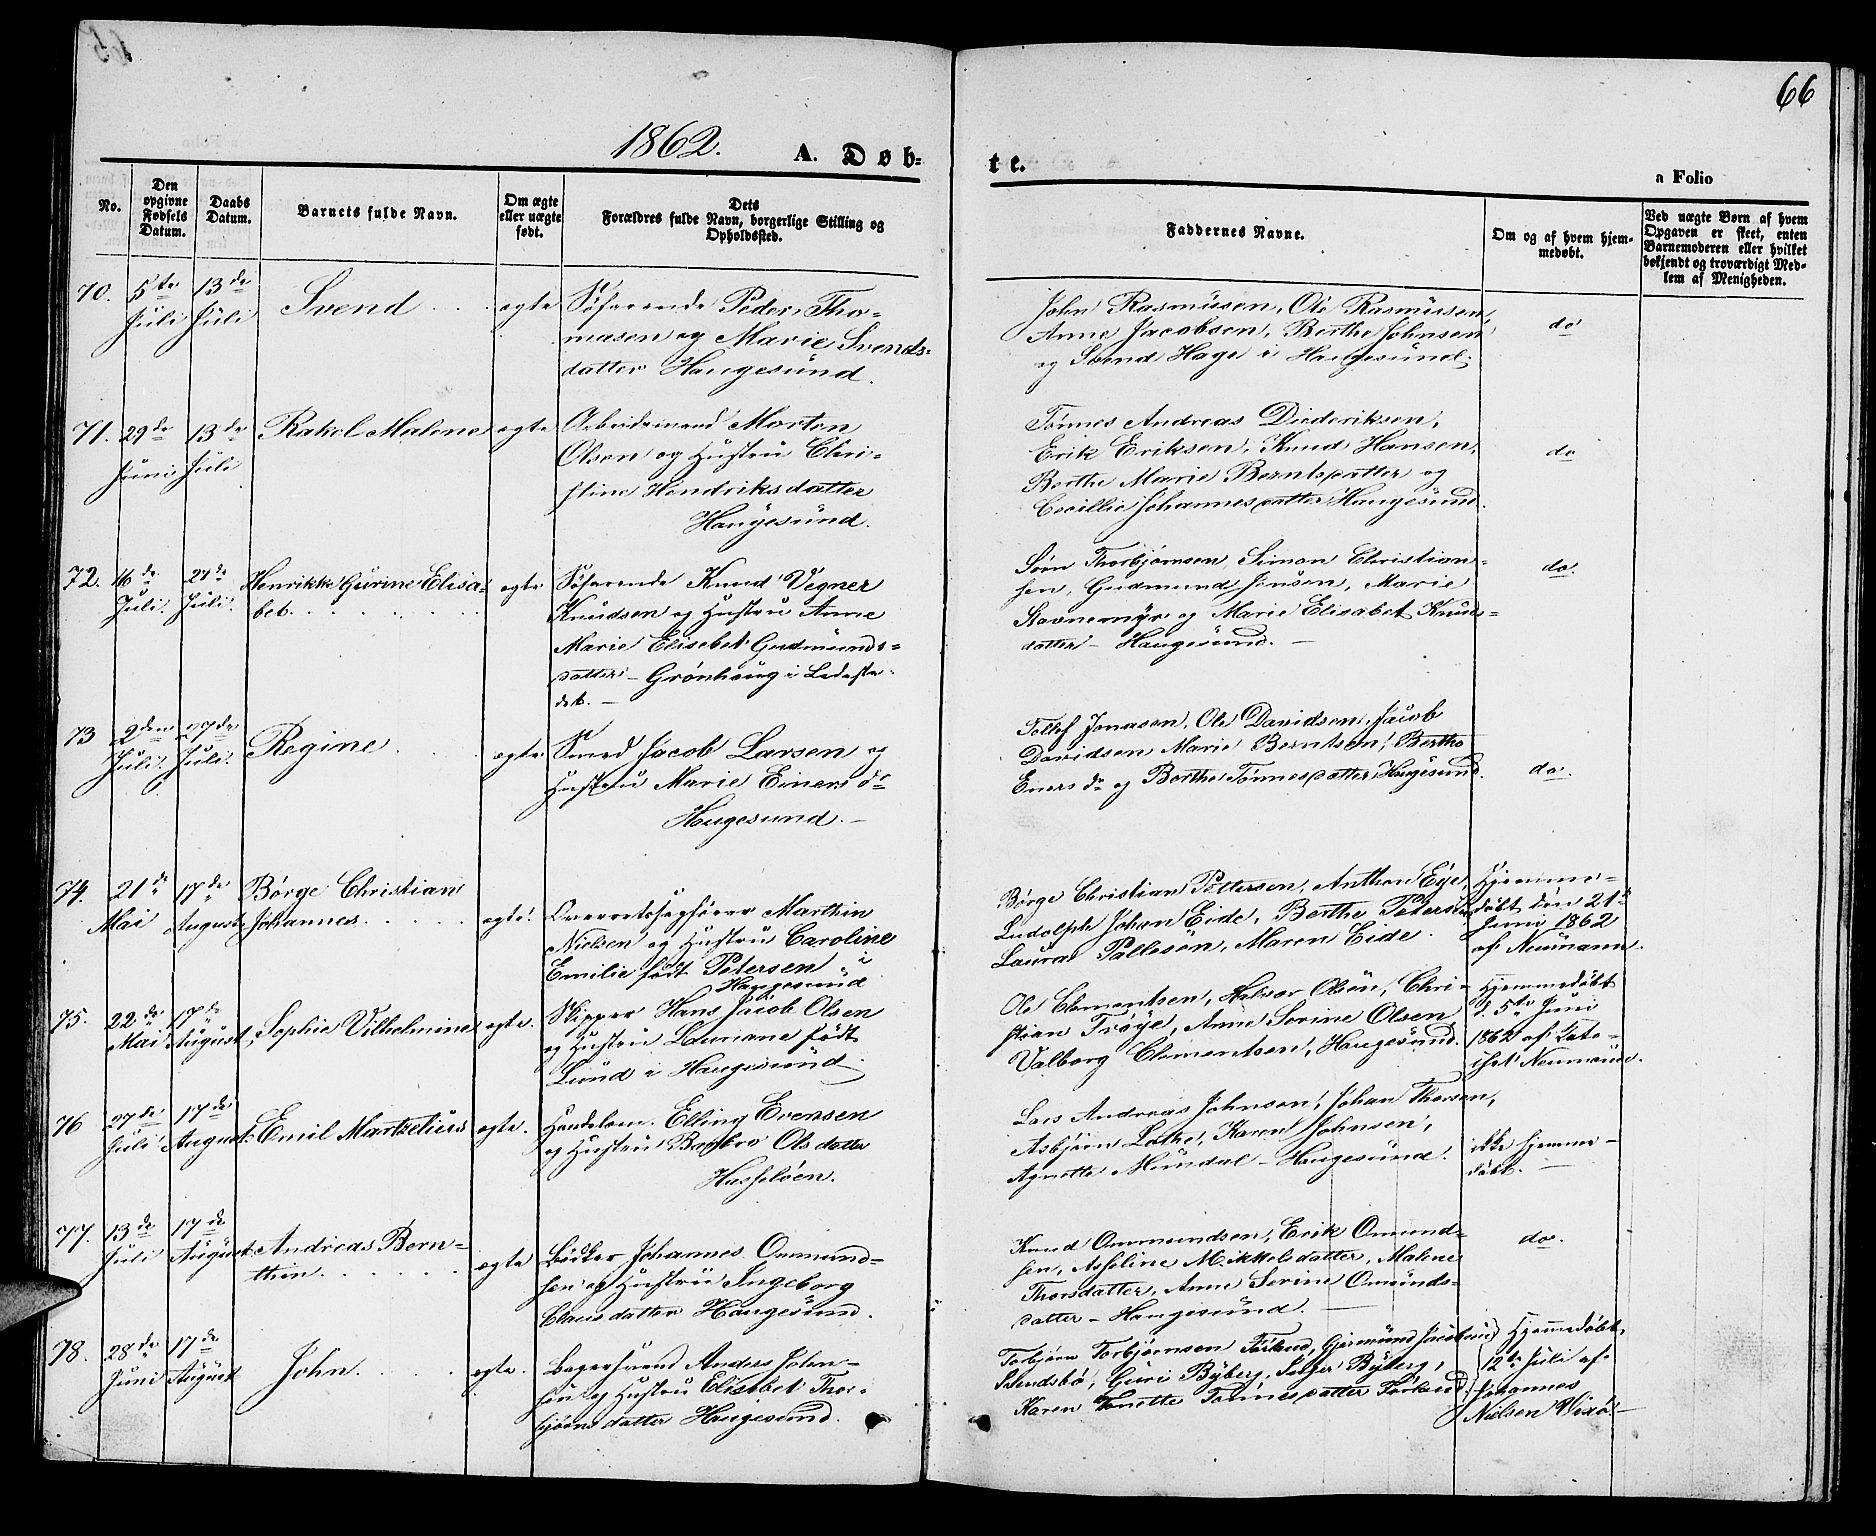 66
1862. A. Døb-
te.
a Folio
No.
Den opgivne Fødsels Datum.
Daabs Datum.
Barnets fulde Navn.
Om ægte eller uægte født.
Dets
Forældres fulde Navn, borgerlige Stilling og
Opholdssted.
Faddernes Navne.
Om og af hvem hjem-
medøbt.
Ved uægte Børn af hvem
Opgaven er skeet, enten
Barnemoderen eller hvilket
bekjendt og troværdigt Med-
lem af Menigheden.
70. 5te Juli 13de Juli Svend ægte
Søfarende Peder Tho-
masen og Marie Svends-
datter Haugesund.
John Rasmusen, Ole Rasmussen,
Anne Jacobsen, Berthe Johnsen
og Svend Hage i Haugesund.
do
71. 29de Juni 13de Juli Rakel Malene ægte
Arbeidsmand Morten
Olsen og Hustru Chri-
stine Hendriksdatter
Haugesund.
Tønnes Andreas Diederiksen,
Erik Eriksen, Knud Hansen,
Berthe Marie Berntsdatter og
Cecillie Johannesdatter Haugesund.
do
72. 16de Juli. 27de Juli. Henrikke Gurine Elisa-
bet. ægte
Søfarende Knud Vegner
Knudsen og Hustru Anne
Marie Elisebet Gudmunds-
datter - Grønhaug i Ladeste-
det. -
Søren Thorbjørnsen, Simon Christian-
sen, Gudmund Jonsen, Marie
Stavnemyr og Marie Elisabet Knuds-
datter - Haugesund. -
do.
73 2den Juli. 27de Juli. Regine ægte
Smed Jacob Larsen og
Hustru Marie Einersdr
Haugesund. -
Tollef Jonasen, Ole Davidsen, Jacob
Davidsen Marie Berntsen, Berthe
Eners dr og Berthe Tønnesdatter Haugesund.
do.
74. 21de Mai 17de August Børge Christian
Johannes. ægte.
Overretssagfører Marthin
Nielsen og Hustru Caroline
Emilie født Petersen i
Haugesund
Børge Christian Pettersen, Anthon Eye,
Ludolph Johan Eide, Berthe Petersen
Laura Pallesen, Maren Eide.
Hjemme-
døbt den 21de
Juni 1862
af Neumann.
75. 22de Mai 17de August Sophie Vilhelmine ægte.
Skipper Hans Jacob Olsen
og Hustru født
Lund i Haugesund
Ole Clementsen, Halvor Olsen, Chri-
stian Trøye, Anne Serine Olsen
Valborg Clementsen, Haugesund.
Hjemmedøbt
d. 5te Juni
1862 af Kate-
ihet Neumann.
76 27de Juli 17de August Emil Martzelius ægte.
Handelsm. Elling Evensen
og Hustru Barbro Olsdatter
Hasseløen.
Lars Andreas Johnsen, Johan Thorsen,
Asbjørn Lothe, Karen Johnsen,
Agnette Mundal - Haugesund.
ikke hjemme-
døbt. -
77. 13de Juli 17de August Andreas Bern-
thin. ægte
Bødker Johannes Ommund-
sen og Hustru Ingeborg
Clausdatter Haugesund.
Knud Ommundsen, Erik Omund-
sen, Asseline Mikkelsdatter, Malene
Thorsdatter, Anne Serine Omunds-
datter - Haugesund. -
do.
78. 28de Juni 17de August John. ægte.
Bagersvend Anders John-
sen og Hustru Elisebet Thor-
bjørnsdatter Haugesund.
Torbjørn Torbjørnsen Førland, Gjermund Jacobsen
Svendsbø, Guri Byberg, Salger Byberg,
Karen Tonette Tønnesdatter Førland.
Hjemmedøbt,
12te Juli af
Johannes
Nielsen Vixø. -